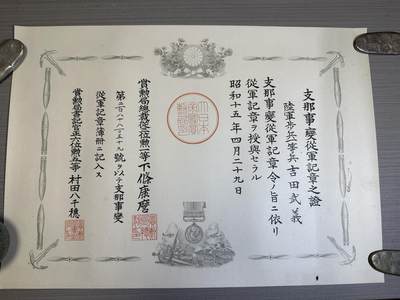 支那事變從軍記章之證
陸軍歩兵等兵吉田武義
支那事變從軍記章令ノ旨ニ依リ
從軍記章ヲ授與セラル
昭和十五年四月二十九日
賞勲局總裁從三位勲一等下條康麿
第號ヲ以テ支那事變
從軍記章簿冊ニ記入ス
賞勲局書記官正六位勲五等村田八千穂